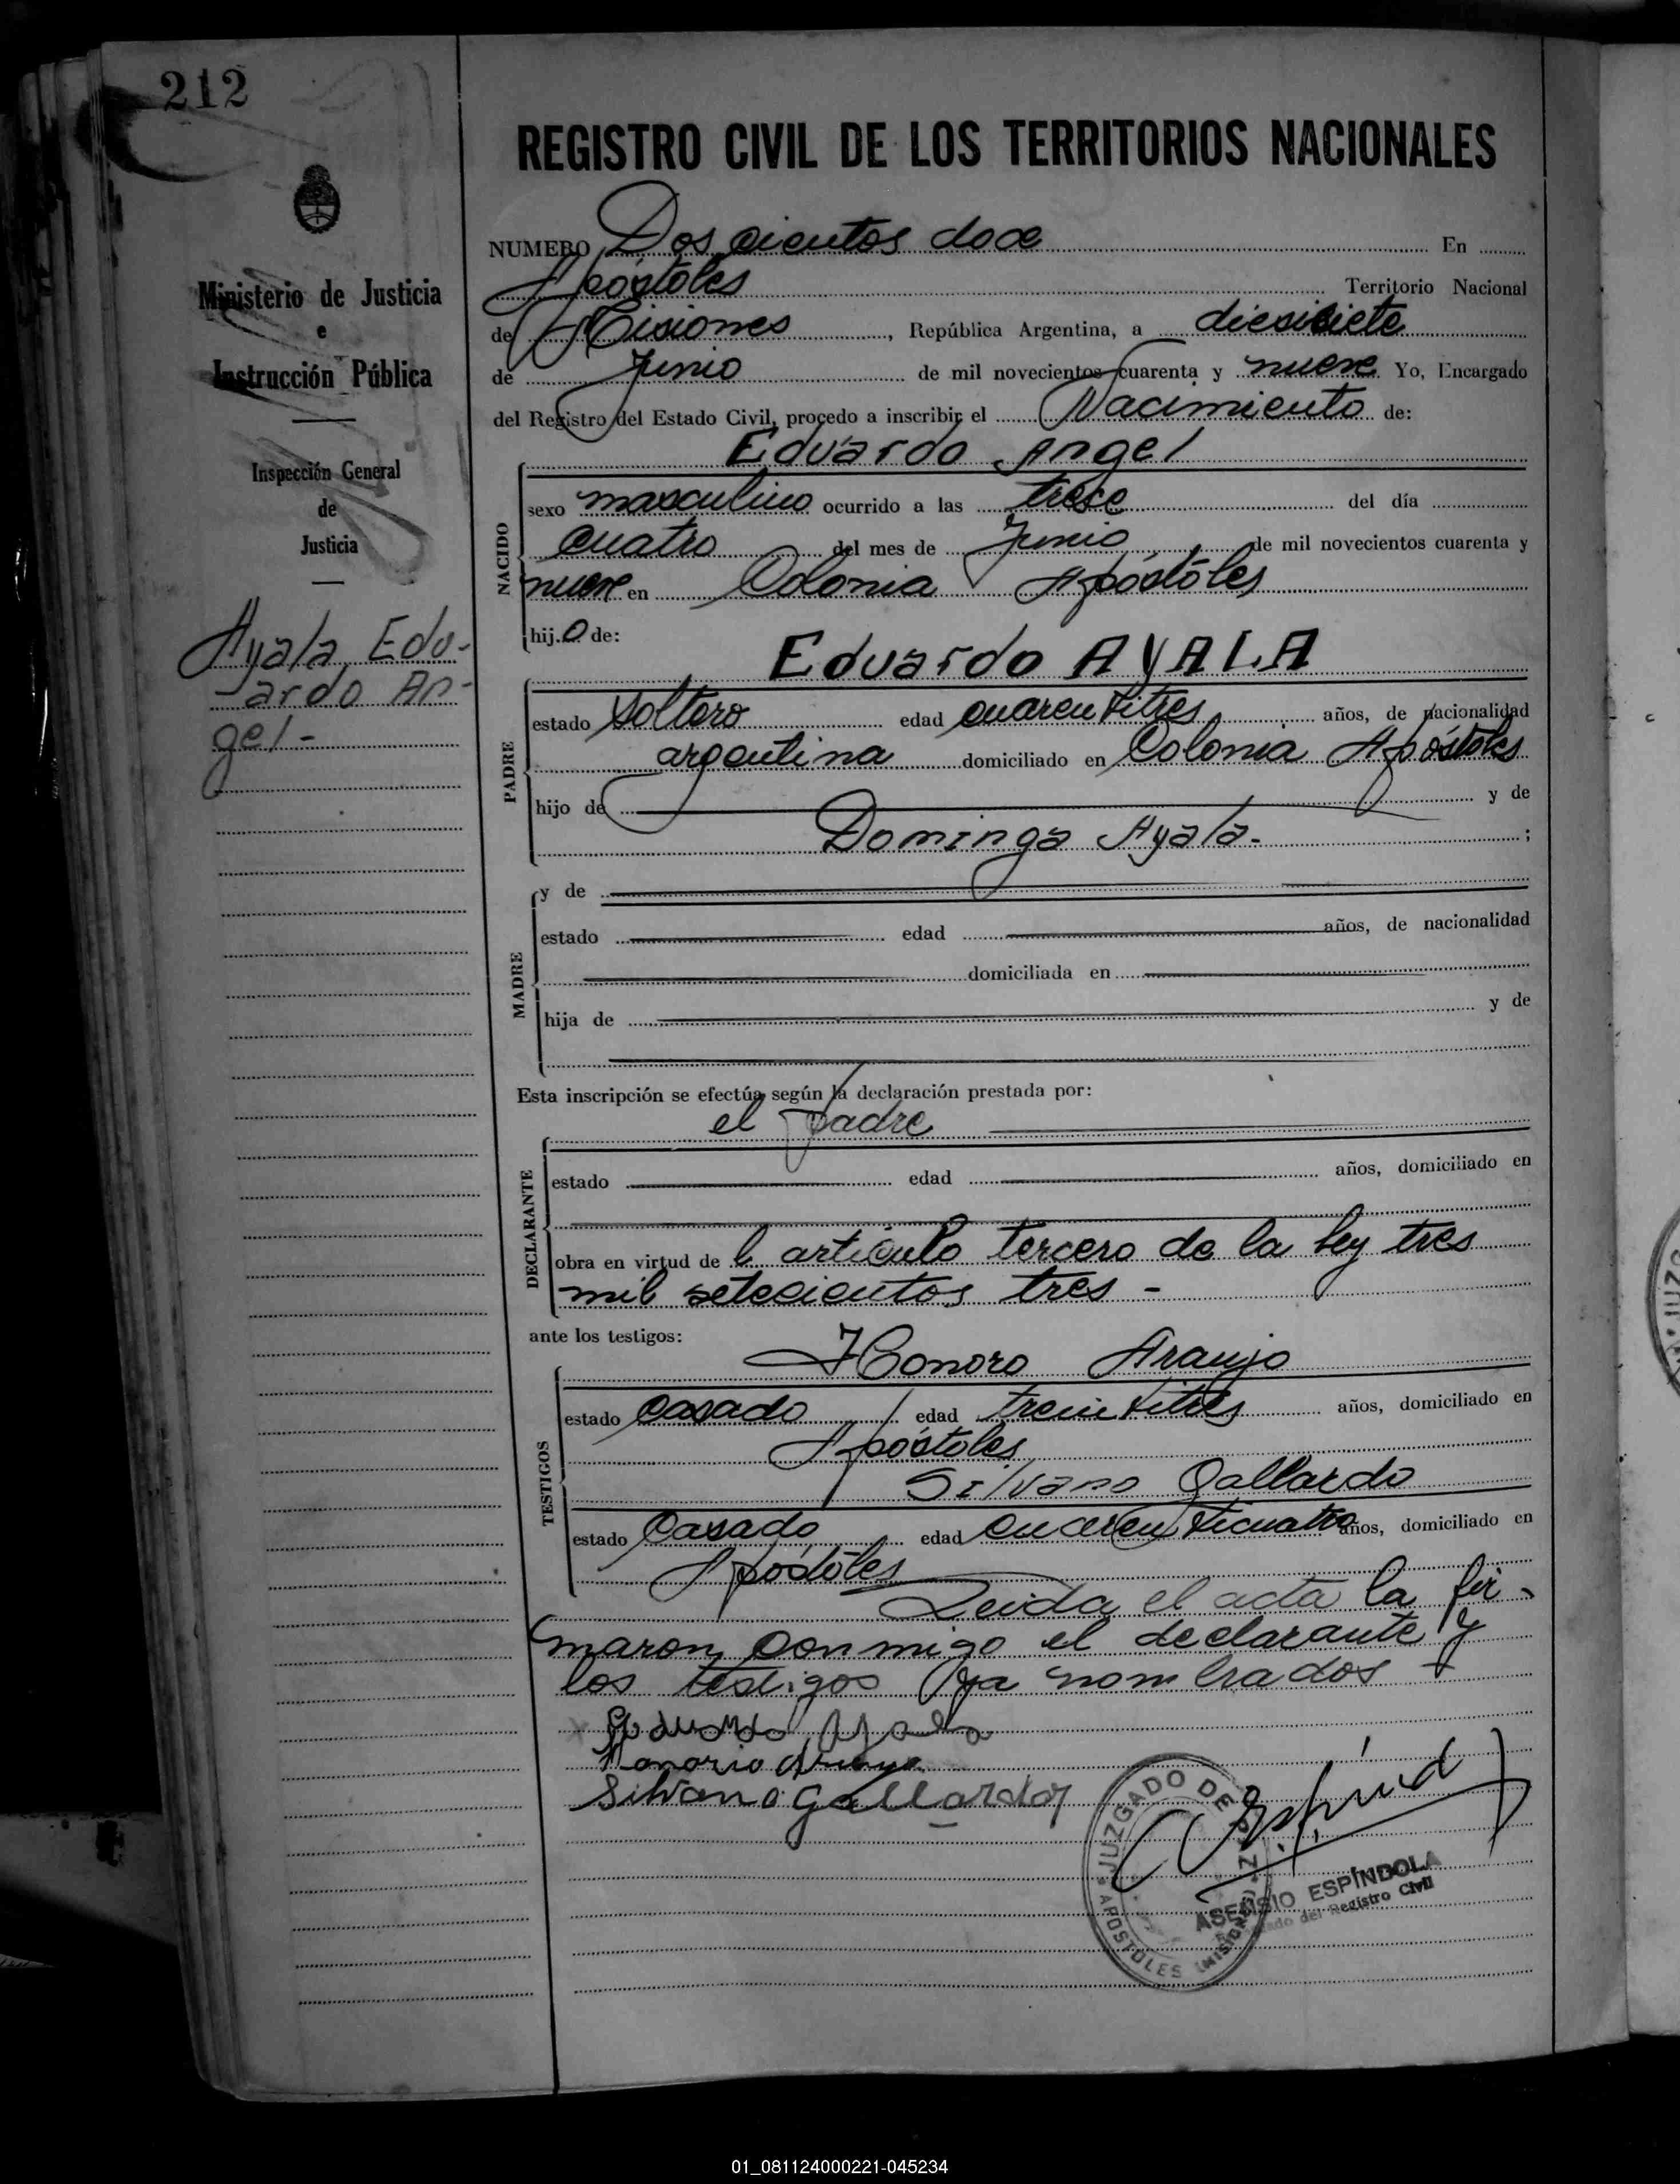 212
REGISTRO CIVIL DE LOS TERRITORIOS NACIONALES
NUMERO Dos cientos doce En
Apóstoles Territorio Nacional
de Misiones, República Argentina, a diesisiete
de Junio de mil novecientos cuarenta y nueve Yo, Encargado
del Registro del Estado Civil, procedo a inscribir el Nacimiento de:
Ministerio de Justicia
e
Instrucción Pública
Inspección General
de
Justicia
Ayala, Edu-
ardo An-
gel-
Eduardo Angel
NACIDO
sexo masculino ocurrido a las trece del día
cuatro del mes de Junio de mil novecientos cuarenta y
nueve en Colonia Apóstoles
hij.o de:
Eduardo AYALA
PADRE
estado soltero edad cuarentitres años, de nacionalidad
argentina domiciliado en Colonia Apóstoles
hijo de y de
Dominga Ayala- ;
MADRE
y de
estado edad años, de nacionalidad
domiciliada en
hija de y de
Esta inscripción se efectúa según la declaración prestada por:
el padre
DECLARANTE
estado edad años, domiciliado en
obra en virtud de l artículo tercero de la ley tres
mil setecientos tres -
ante los testigos:
Honoro Araujo
TESTIGOS
estado casado edad treintitres años, domiciliado en
Apóstoles
Silvano Gallardo
estado Casado edad cuarenticuatro años, domiciliado en
Apóstoles
Leida el acta la fir-
maron conmigo el declarante y
los testigos ya nombrados
Eduardo Ayala
Honorio Araujo
Silvano Gallardo
JUZGADO DE PAZ
APOSTOLES (MISIONES)
ASENSIO ESPÍNDOLA
Encargado del Registro Civil
01_081124000221-045234